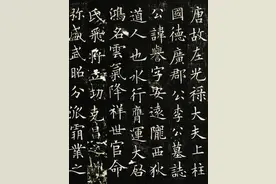 唐故左光禄大夫上柱
國德廣郡公李公墓誌
公諱譽字安遠隴西狄
道人也水行膺運大啓
鴻名雲氣降祥世官命
氏飛將立功克昌
弥盛武昭分派霸業之